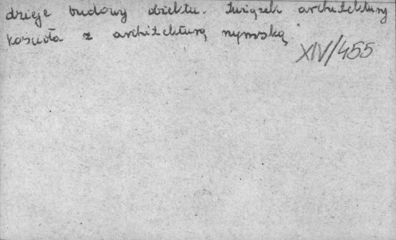 dzieje budowy obiektu. Związek architektury
kościoła z architekturą rzymską
XIV/455